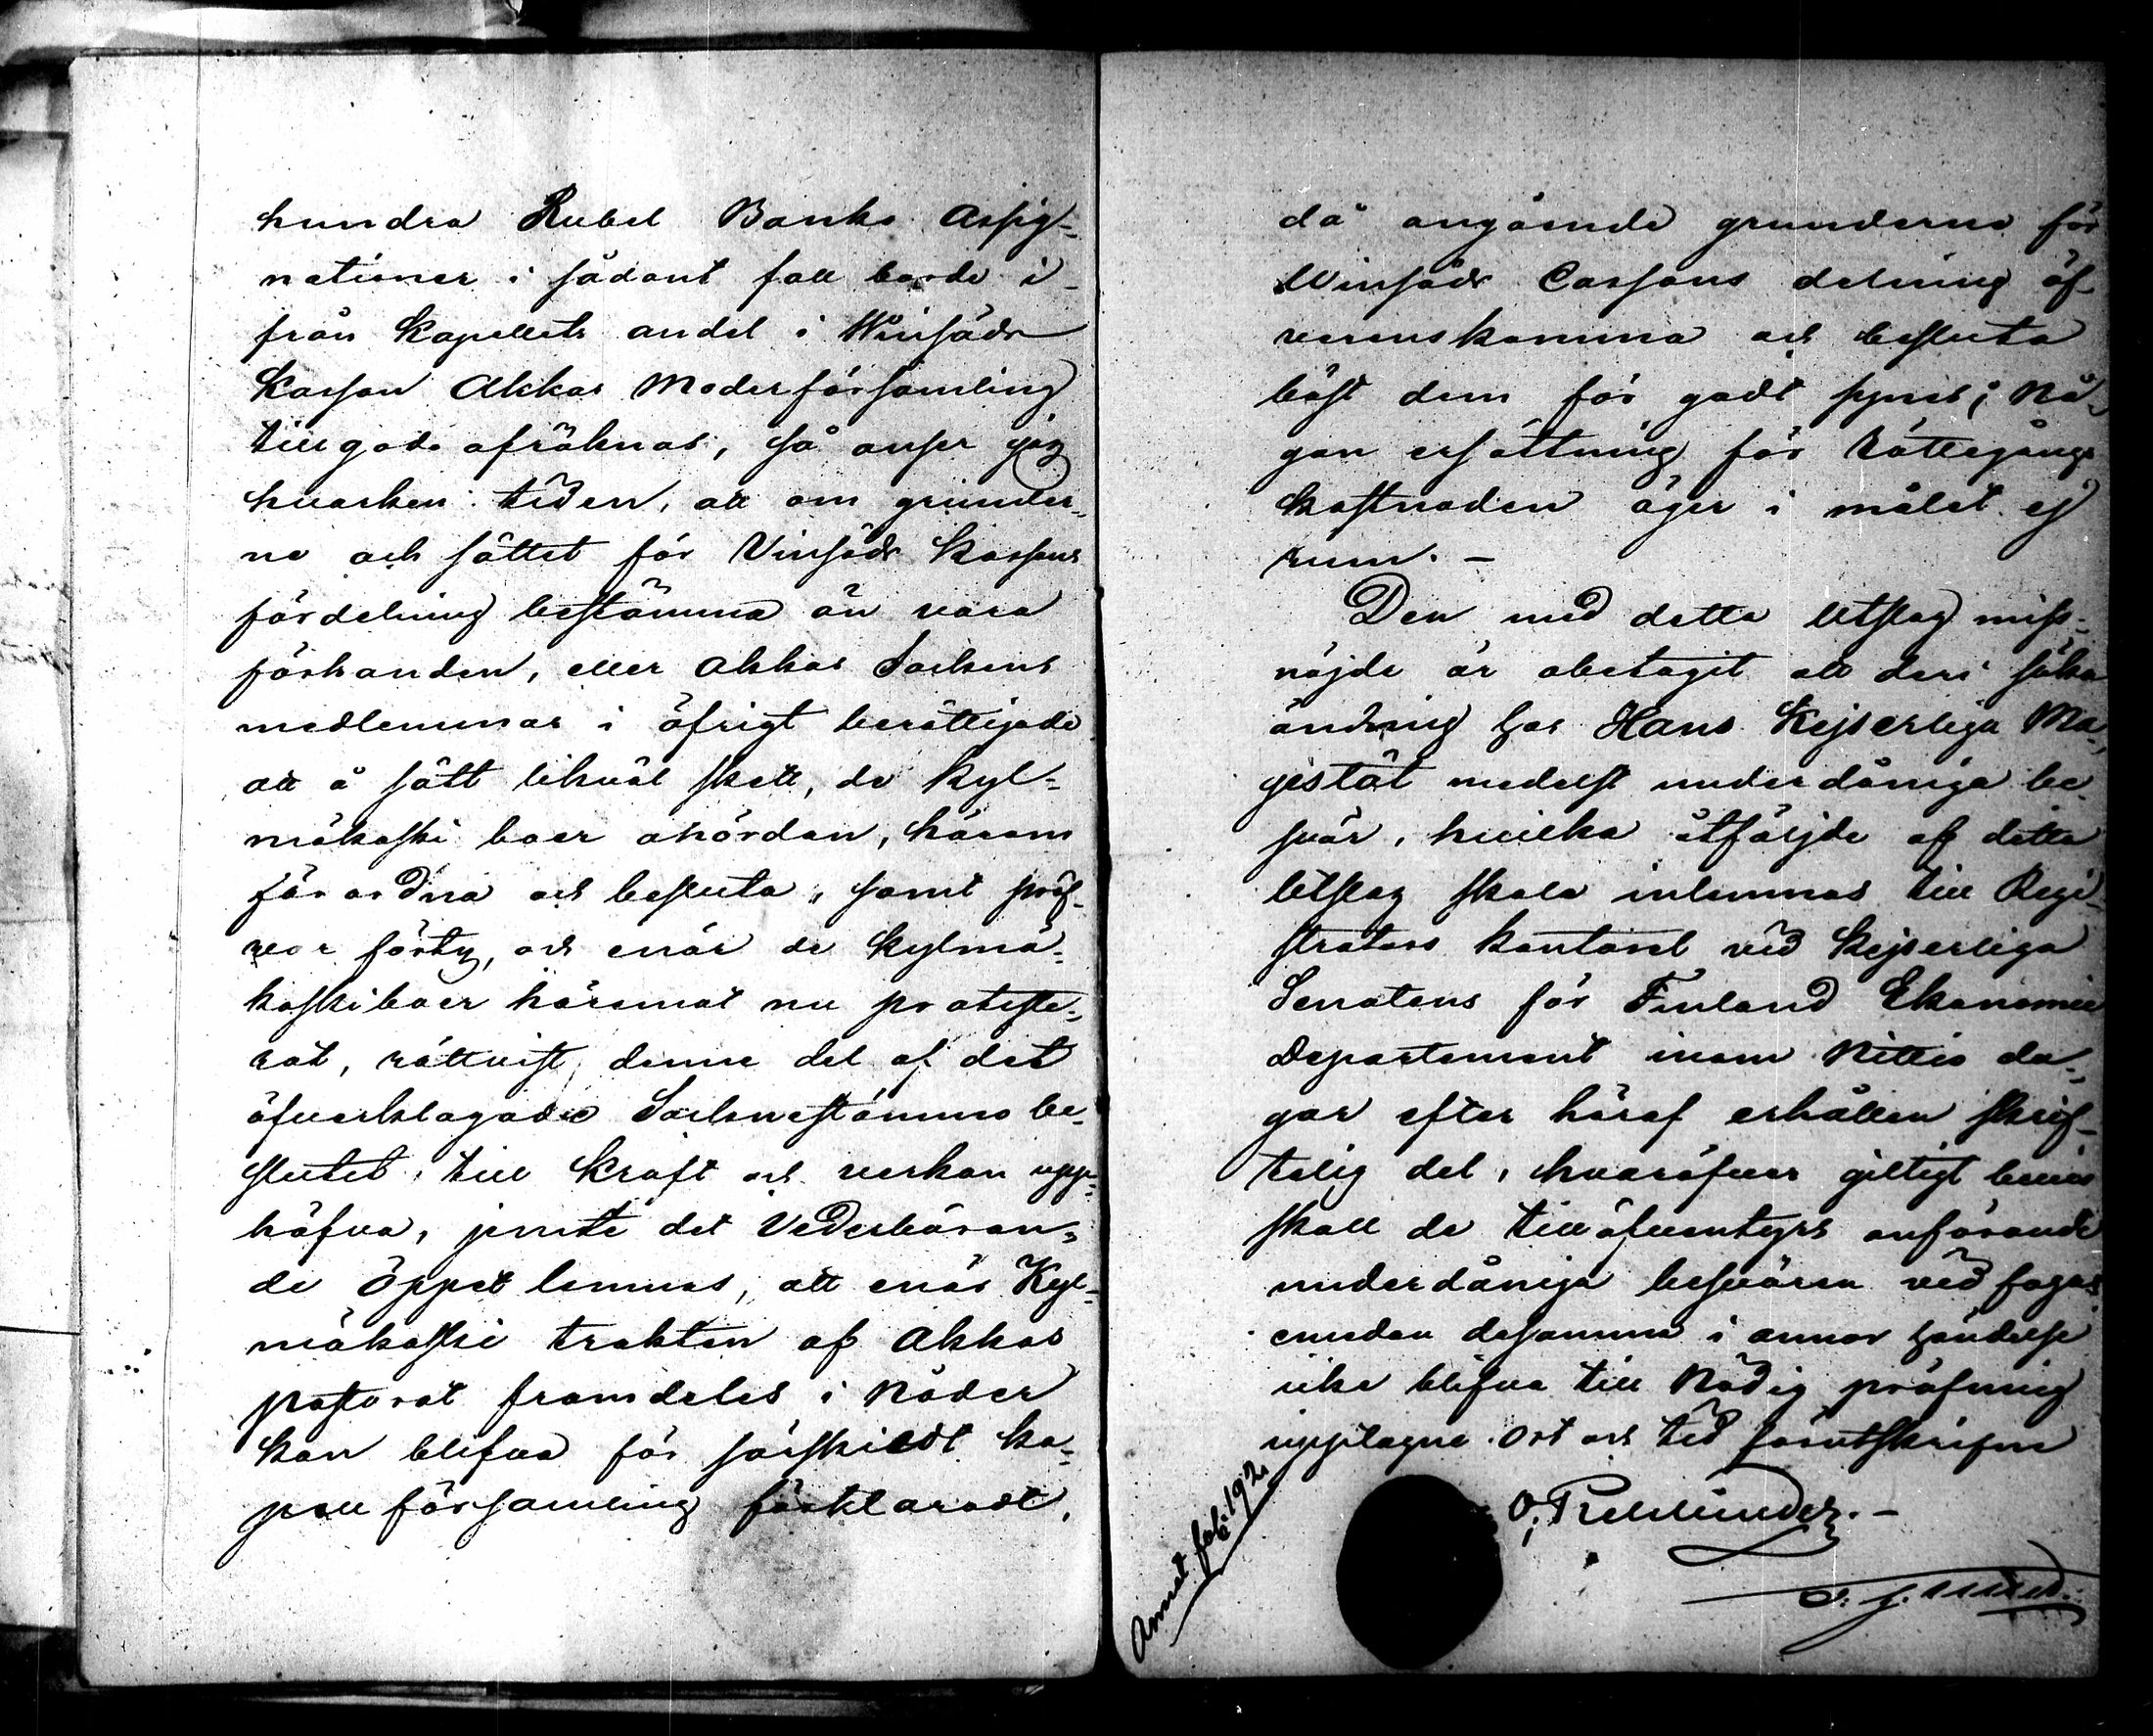 hundra Rubel Banko Assig-
nationer i sådant fall borde i-
från Kapellets andel i Winsäds
Kassan Akkas Moderförsamling
tillgodo afräknas, så anser jag
hvarken tiden, att om grunder-
na och sättet för Vinsäds Kassans
fördelning bestämma än vara
förhanden, eller Akkas Sockens
medlemmar i öfrigt berättigade
att å sätt likväl skett, de Kyl-
mäkoski boer ohördan, härom
förordna och besluta, samt pröf-
var förty, och enär de Kylmä-
koskiboer häremot nu proteste-
rat, rättvist, denna del af det
öfverklagade Sockenestämmo be-
slutet, till Kraft och verkan upp-
häfva, jemte det Vederböran-
de öppet lemnas, att enär Kyl-
mäkoski trakten af Akkas
pastorat framdeles i Nåder
kan blifva för särskildt ka-
pell församling förklaradt,
då angående grunderna för
Winsäds Cassans delning öf-
verenskomma och besluta
bäst dem för godt synes; Nå-
gon ersättning för Rättegångs
kostnaden äger i målet ej
rum. –
Den med detta Utslag miss-
nöjde är obetagit att deri söka
ändring hos Hans Kejserliga Ma-
jestät medelst underdåniga be-
svär, hvilka åtföljde af detta
Utslag skola inlemnas till Regi-
strators Kontoret vid Kejserliga
Senatens för Finland Ekonomie
Departement inom Nittio da-
gar efter häraf erhållen skrif-
telig del, hvaröfver giltigt bevis
skall de till äfventyrs anförande
underdåniga besvären vid fogas
emedan desamma i annor händelse
icke blifva till Nådig pröfning
upptagne. Ort och tid förutskrifne
O. Rehbinder. –
Annat fol: 192.